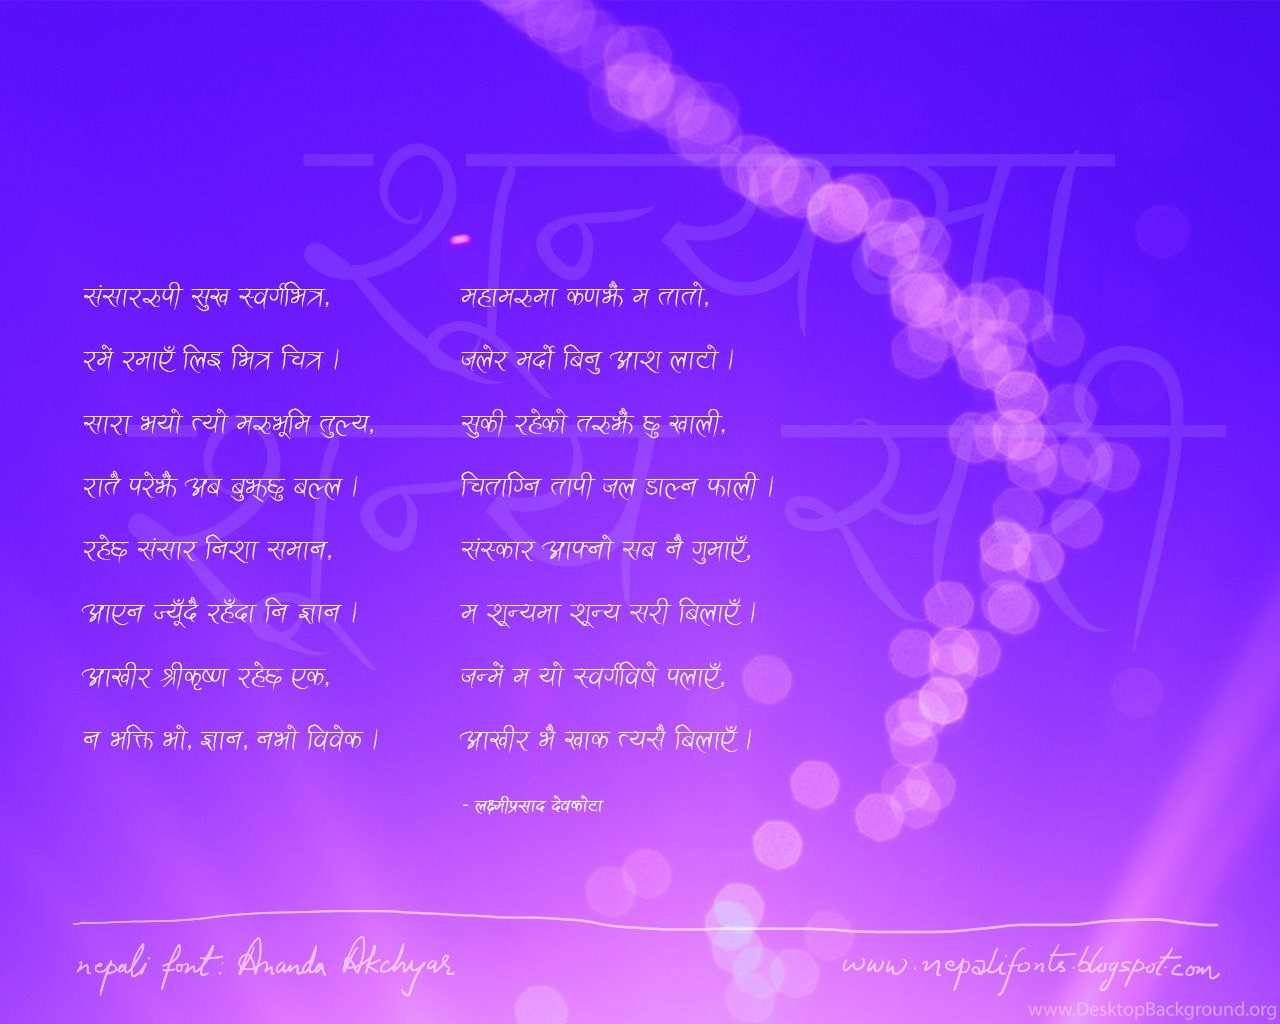 शून्यमा
शून्य सरी
संसाररुपी सुख स्वर्गभित्र,
रमें रमाएँ लिइ भित्र चित्र ।
सारा भयो त्यो मरुभूमि तुल्य,
रातै परेझैं अब बुझ्छु बल्ल ।
रहेछ संसार निशा समान,
आएन ज्यूँदै रहँदा नि ज्ञान ।
आखीर श्रीकृष्ण रहेछ एक,
न भक्ति भो, ज्ञान, नभो विवेक ।
महामरुमा कणझैं म तातो,
जलेर मर्दो बिनु आश लाटो ।
सुकी रहेको तरुझैं छु खाली,
चिताग्नि तापी जल डाल्न फाली ।
संस्कार आफ्नो सब नै गुमाएँ,
म शून्यमा शून्य सरी बिलाएँ ।
जन्में म यो स्वर्गविषे पलाएँ,
आखीर भै खाक त्यसै बिलाएँ ।
- लक्ष्मीप्रसाद देवकोटा
nepali font: Ananda Akchyar
www.nepalifonts.blogspot.com
www.DesktopBackground.org